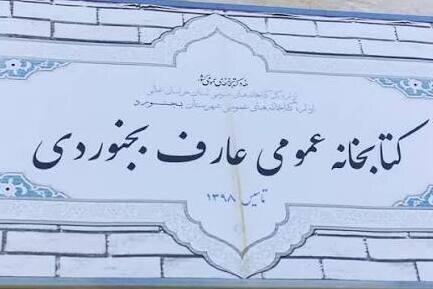 نهاد کتابخانه‌های عمومی کشور
اداره کل کتابخانه‌های عمومی استان خراسان شمالی
اداره کتابخانه‌های عمومی شهرستان بجنورد
کتابخانه عمومی عارف بجنوردی
تاسیس ۱۳۹۸